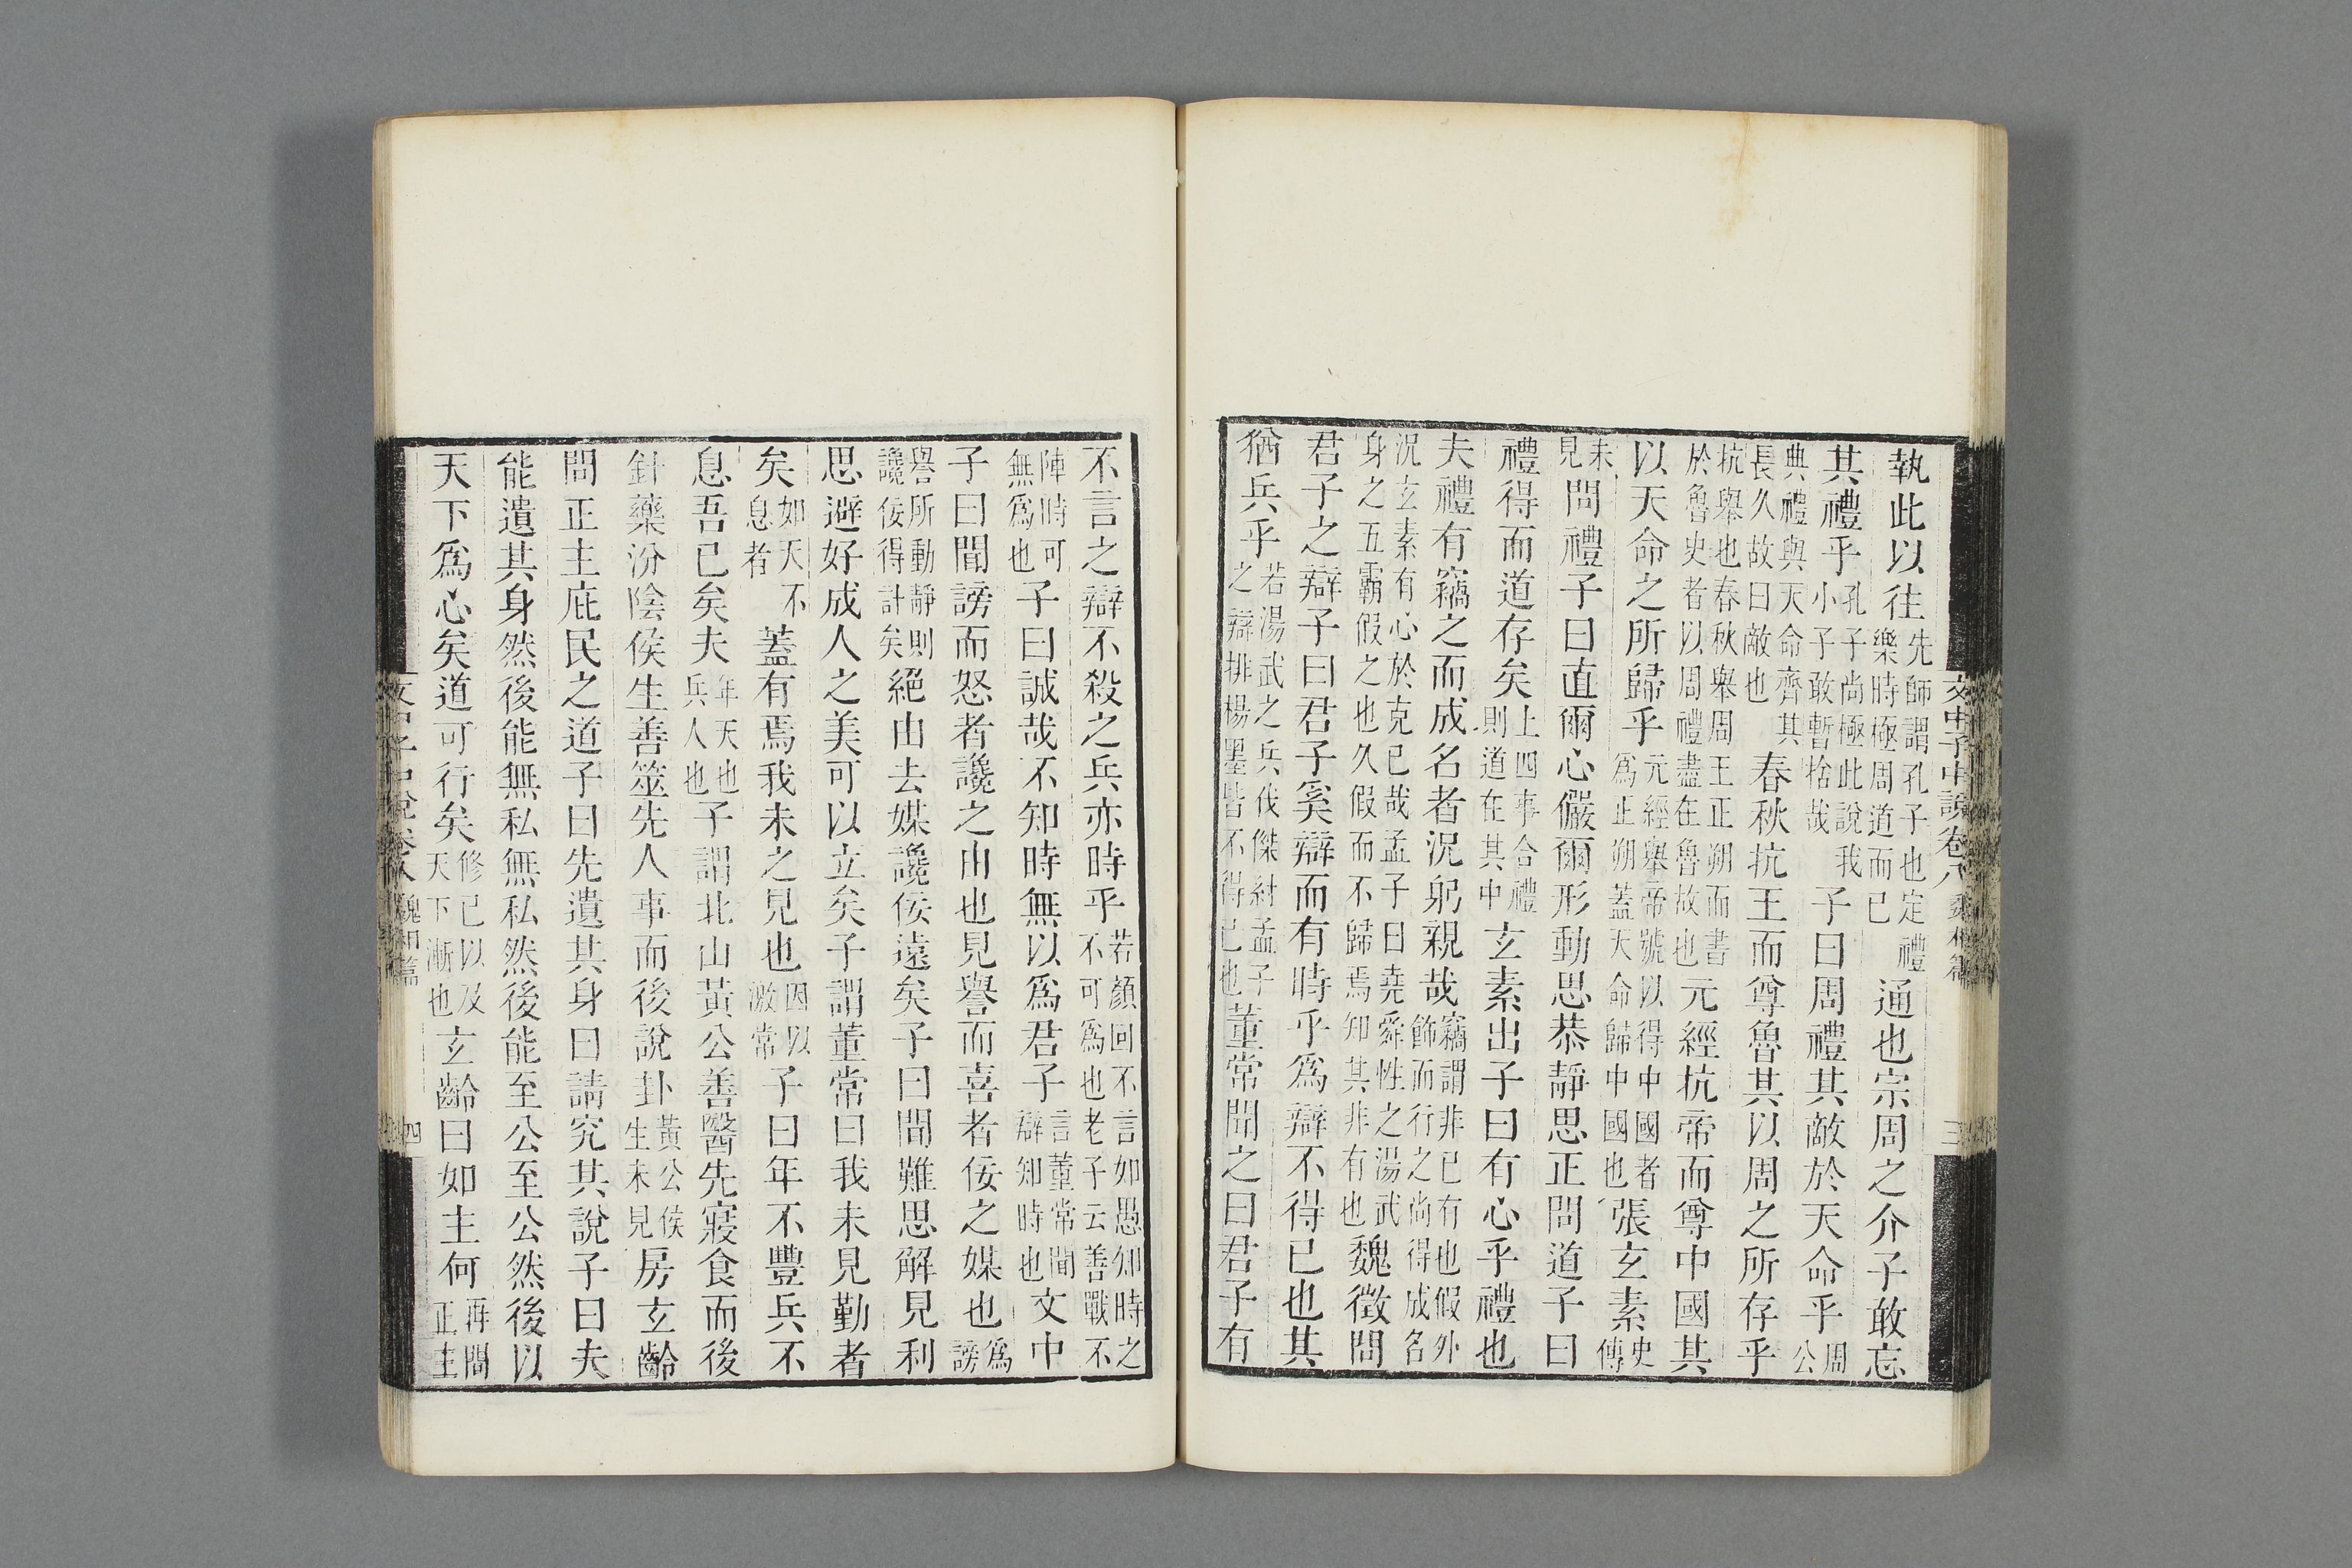 文中子中說卷八
三
執此以往先師謂孔子也定禮樂時極周道而已通也宗周之介子敢忘
其禮乎孔子尚極此說我小子敢暫捨哉子曰周禮其敵於天命乎周公
典禮與天命齊其長久故曰敵也春秋抗王而尊魯其以周之所存乎
抗舉也春秋舉周王正朔而書於魯史者以周禮盡在魯故也元經抗帝而尊中國其
以天命之所歸乎元經舉帝號以得中國者爲正朔蓋天命歸中國也張玄素史傳
未見問禮子曰直爾心儼爾形動思恭靜思正問道子曰
禮得而道存矣上四事合禮則道在其中玄素出子曰有心乎禮也
夫禮有竊之而成名者況躬親哉竊謂非已有也假外飾而行之尚得成名
況玄素有心於克已哉孟子曰堯舜性之湯武身之五霸假之也久假而不歸焉知其非有也魏徵問
君子之辯子曰君子奚辯而有時乎爲辯不得已也其
猶兵乎若湯武之兵伐傑紂孟子之辯排楊墨皆不得已也董常聞之曰君子有
不言之辯不殺之兵亦時乎若顏回不言如愚知時之不可爲也老子云善戰不
陣時可無爲也子曰誠哉不知時無以爲君子言董常聞辯知時也文中
子曰聞謗而怒者讒之由也見譽而喜者佞之媒也爲謗
譽所動靜則讒佞得計矣絕由去媒讒佞遠矣子曰聞難思解見利
思避好成人之美可以立矣子謂董常曰我未見勤者
矣如天不息者蓋有焉我未之見也因以激常子曰年不豐兵不
息吾已矣夫年天也兵人也子謂北山黃公善醫先寢食而後
針藥汾陰侯生善筮先人事而後說卦黃公侯生未見房玄齡
問正主庇民之道子曰先遺其身曰請究其說子曰夫
能遺其身然後能無私無私然後能至公至公然後以
天下爲心矣道可行矣修已以及天下漸也玄齡曰如主何再問正主
四